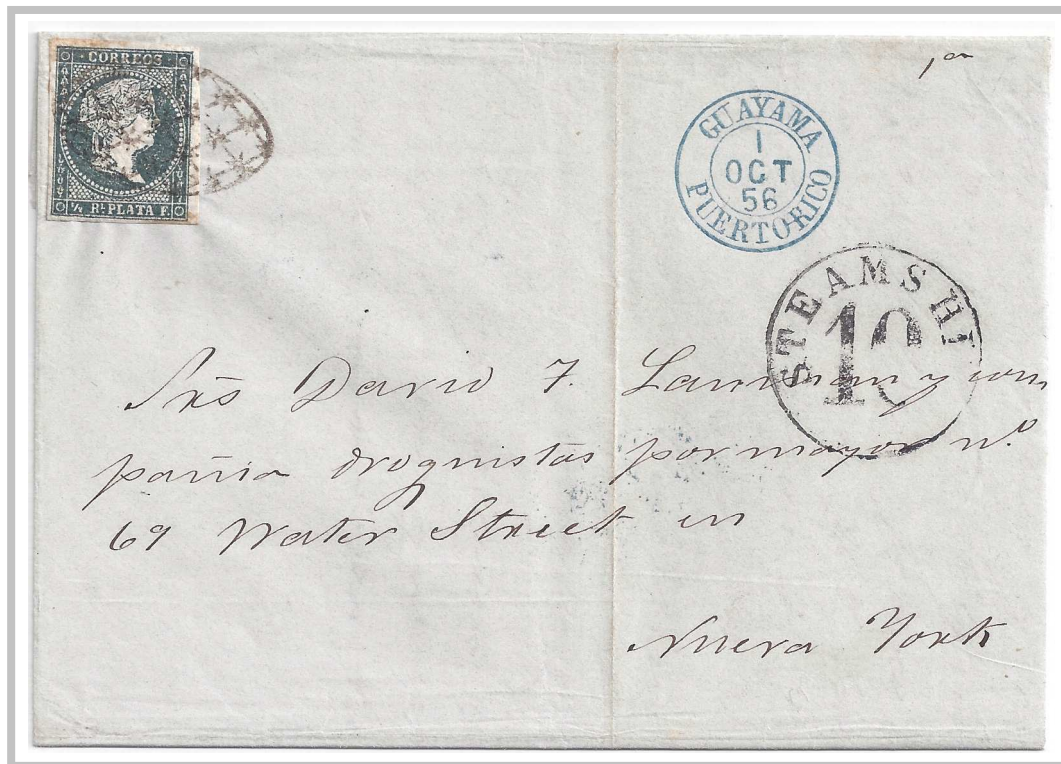 CORREOS
½ Rl. PLATA F.
GUAYAMA
1
OCT
56
PUERTO-RICO
STEAMSHI
10
Srs David T. Lanman y com
pañia droguistas por mayor nº
69 Water Street en
Nueva York